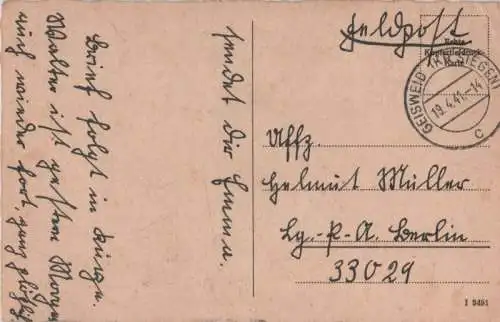 Feldpost
Echte
Kupfertiefdruck-
Karte
GEISWEID (KR. SIEGEN)
19.4.41.-14
c
Uffz.
Helmut Müller
Lg.-P.A. Berlin
33029
I 3491
sendet Dir Emma.
Brief folgt in Kürze.
Walter ist gestern Morgen
auch wieder fort, ganz plötzl.